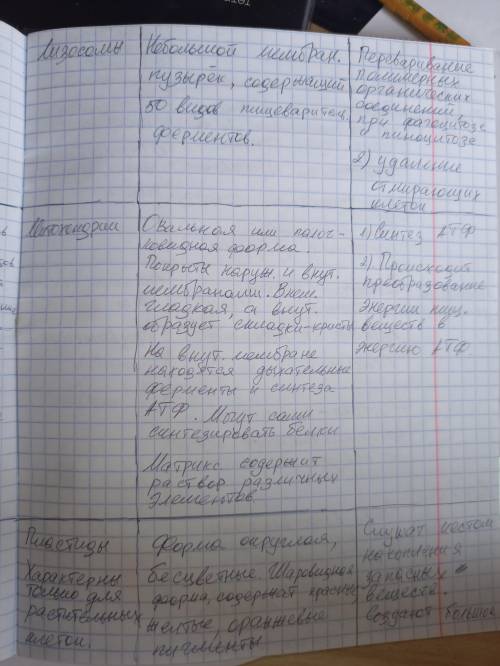 Лизосомы
Небольшой мембран.
пузырёк, содержащий
50 видов пищеварител.
ферментов.
Переваривание
полимерных
органических
соединений
при фагоцитозе
и пиноцитозе
2) удаление
отмирающих
клеток
Митохондрии
Овальная или палоч-
ковидная форма.
Покрыты наружн. и внут.
мембранами. Внеш.
гладкая, а внут.
образует складки-кристы
На внут. мембране
находятся дыхательные
ферменты и синтеза
АТФ. Могут сами
синтезировать белки
Матрикс содержит
раствор различных
элементов.
1) Синтез АТФ
2) Происходит
преобразование
энергии пищ.
веществ в
энергию АТФ
Пластиды
Характерны
только для
растительных
клеток.
Форма округлая,
бесцветные. Шаровидная
форма, содержат красные,
желтые, оранжевые
пигменты
Служат местом
накопления
запасных
веществ.
Создают большое